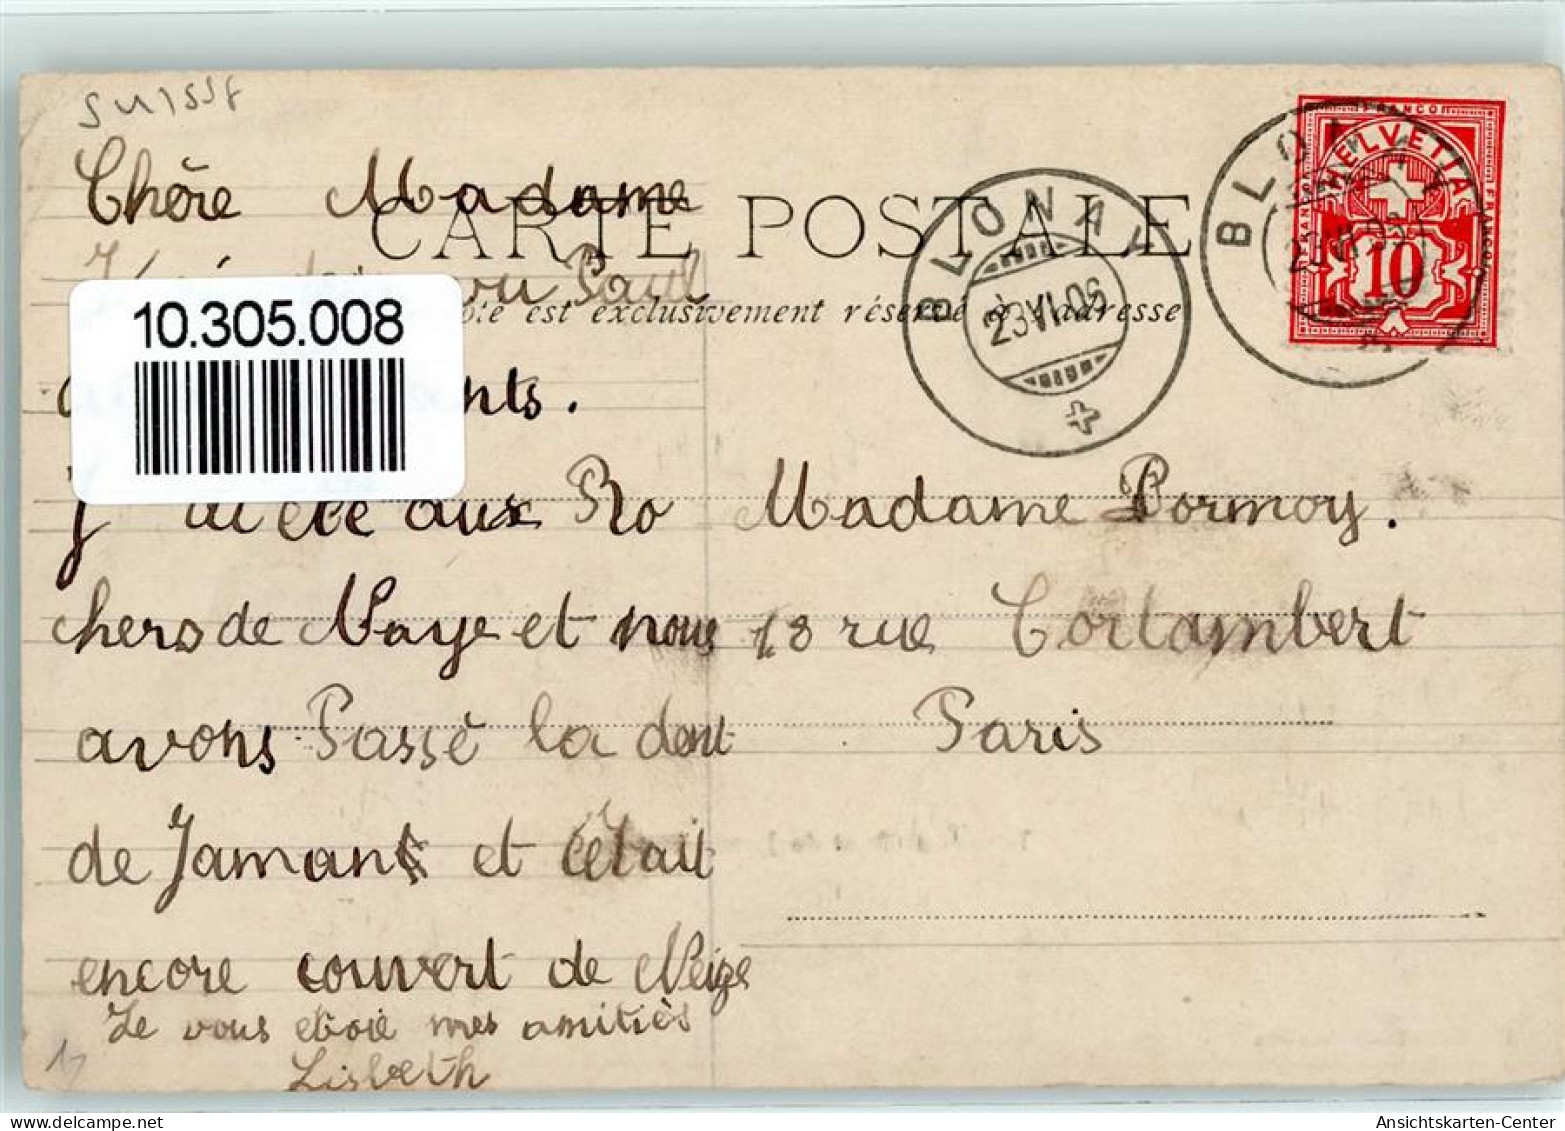 SUISSE
Chère Madame
CARTE POSTALE
ou Paul
ôté est exclusivement réservé à l'adresse
10.305.008
nts.
J ai été aux Ro
chers de Naye et nous
avons Passé la dent
de Jamant et c'était
encore couvert de Neige
Je vous etvoie mes amitiès
Lisbeth
Madame Pormoy.
18 rue Cortambert
Paris
BLONAY
23 VI 06
BLONAY
FRANCO
HELVETIA
FRANCO
FRANCO
10
delcampe.net
Ansichtskarten-Center